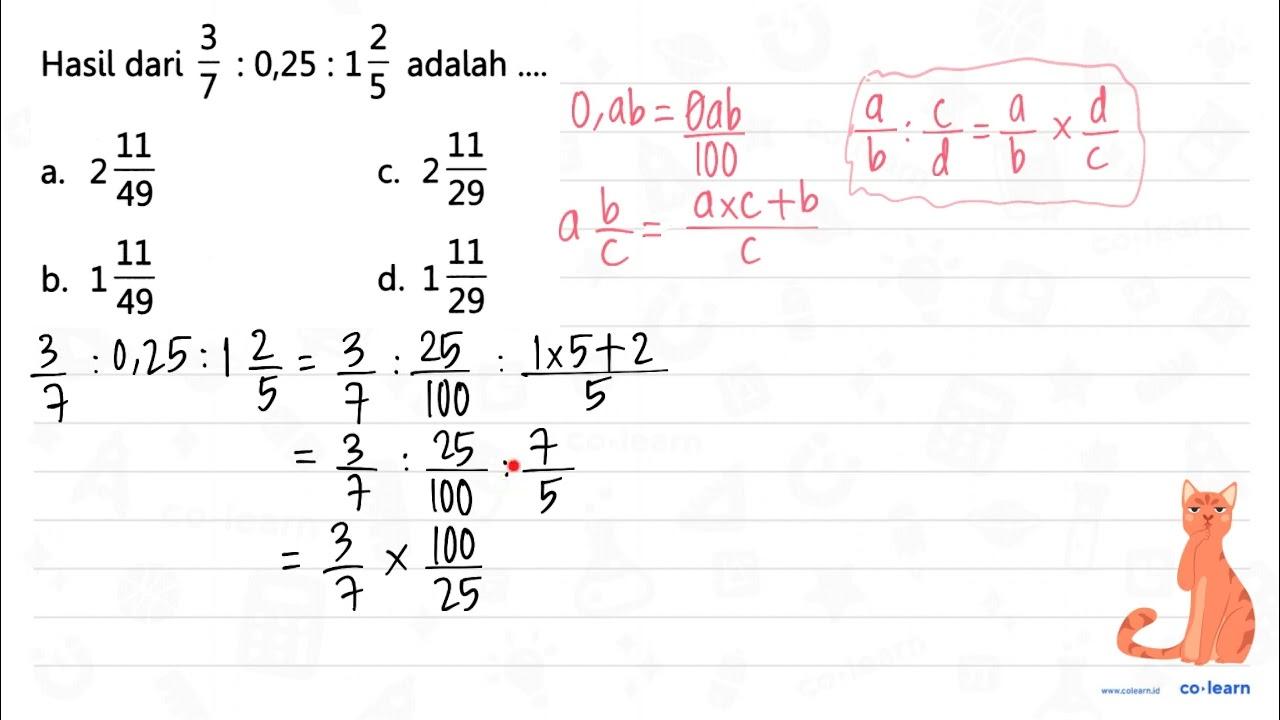 Hasil dari 3/7 : 0,25 : 1 2/5 adalah ....
a. 2 11/49
c. 2 11/29
b. 1 11/49
d. 1 11/29
0,ab = 0ab/100
a/b : c/d = a/b × d/c
a b/c = a×c+b/c
3/7 : 0,25 : 1 2/5 = 3/7 : 25/100 : 1×5+2/5
= 3/7 : 25/100 : 7/5
= 3/7 × 100/25
www.colearn.id co·learn